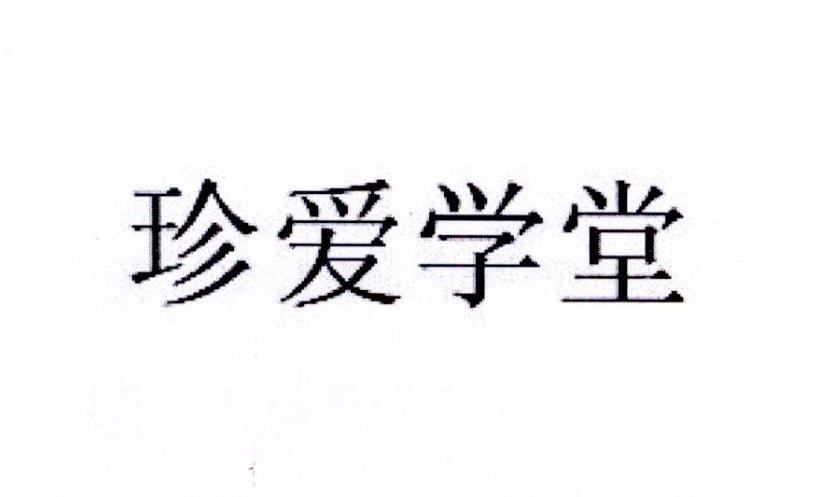 珍爱学堂